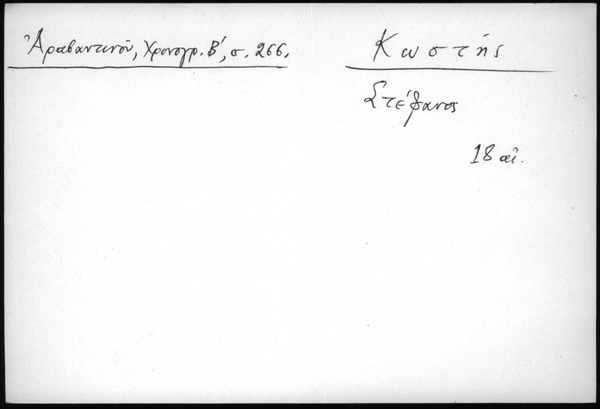 Ἀραβαντινοῦ, Χρονογρ. Β', σ. 266.
Κωστῆς
Στέφανος
18 αἰ.